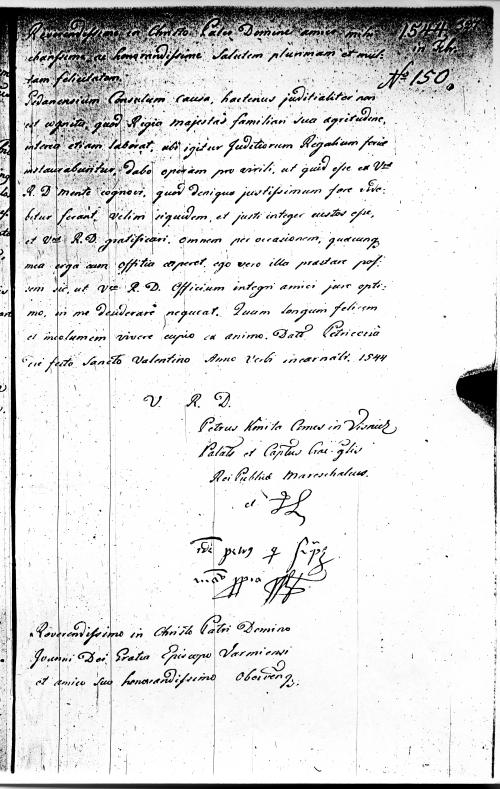 Reverendissime in Christo Pater Domine amice mihi
charissime, ac honorandissime salutem plurimam et mul-
tam felicitatem.
1544
in Febr.
No 150.
Gedanensium Consulum causa, hactenus juditialiter non
est cognita, quod Regia Majestas familiari sua agritudine,
interea etiam laborat, ubi igitur Juditiorum Regalium feriæ
instaurabuntur, dabo operam pro virili, ut quid esse ex Vræ
R. D mente cognovi, quod denique justissimum fore vide-
bitur ferant. Velim siquidem, et justi integer custos esse,
et Vræ R. D. gratificari. omnem per occasionem, quacunq
mea erga eum offitia ceperet, ego vero illa præstare pos-
sem sic, ut Vræ R. D. Officium integri amici jure opti-
mo, in me desiderare nequeat. Quam longum felicem
et incolumem vivere cupio ex animo. Dat Petricoviæ
die festo Sancto Valentino Anno Verbi incarnati. 1544
V. R. D.
Petrus Kmita Comes in Visnicz
Palats et Captus Crac.
Rei Publicæ Mareschalcus.
et
Reverendissimo in Christo Patri Domino
Joanni Dei Gratia Episcopo Varmiensi
et amico suo honorandissimo